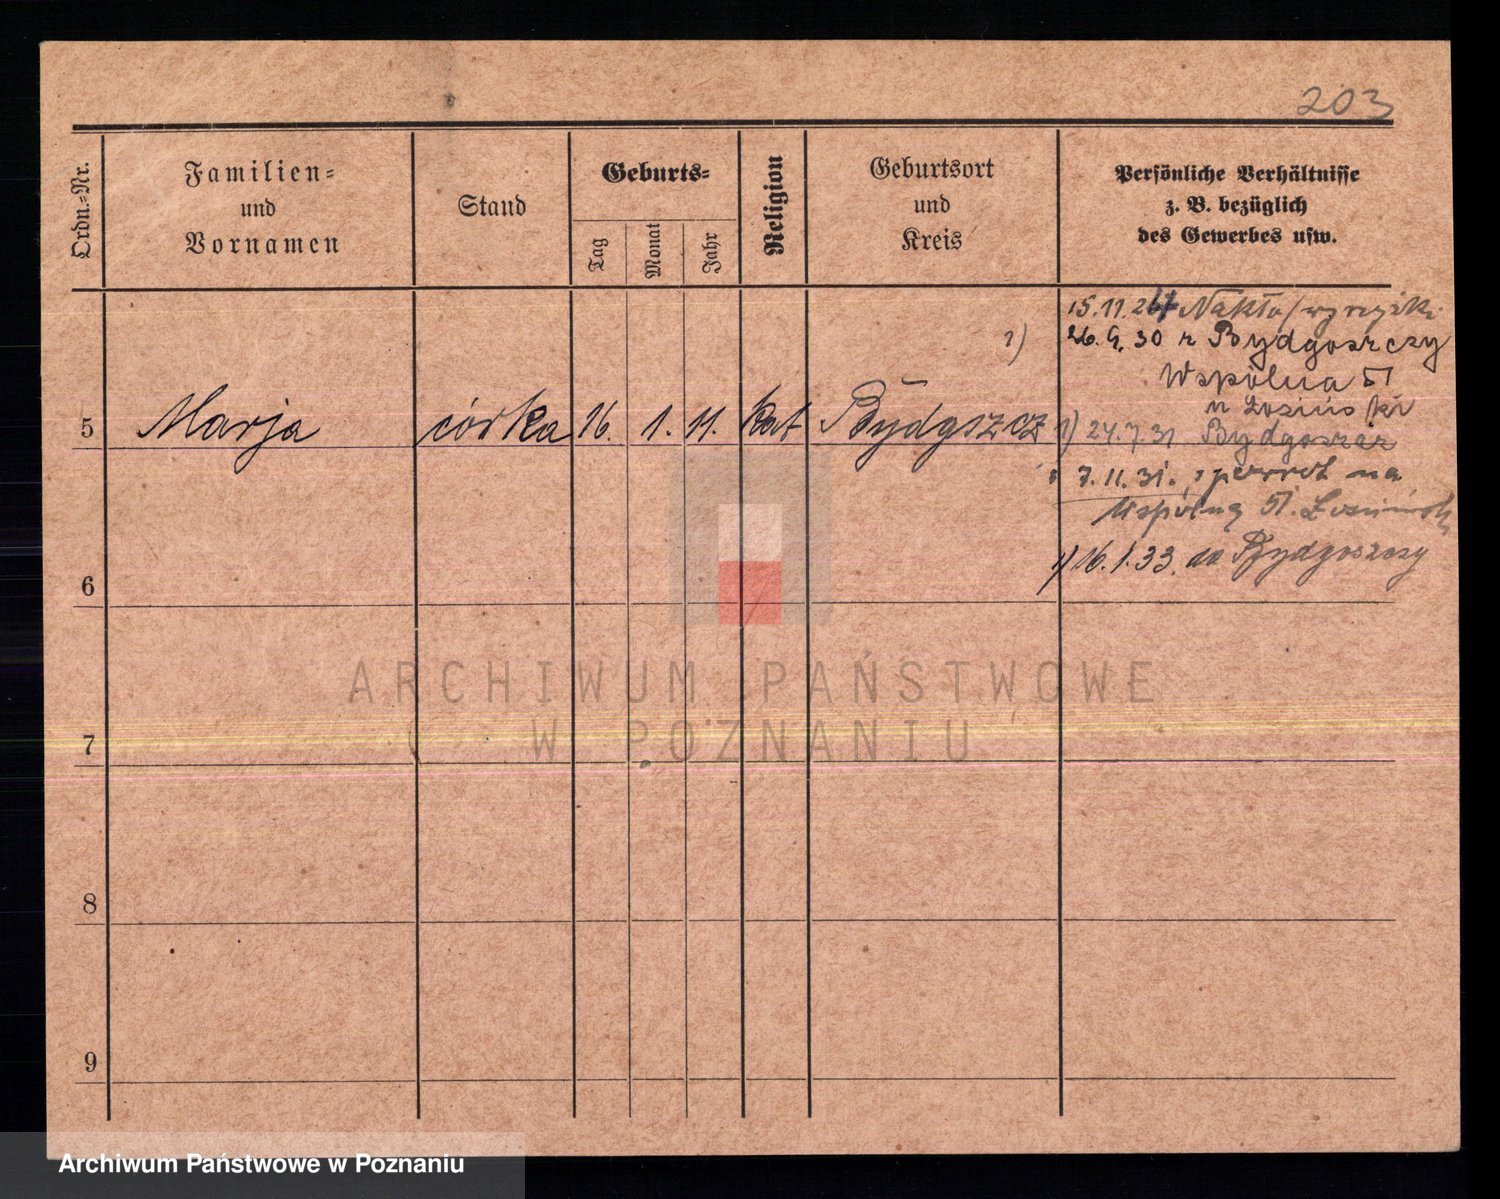 203
Ordn.-Nr.
Familien-
und
Vornamen
Stand
Geburts-
Tag
Monat
Jahr
Religion
Geburtsort
und
Kreis
Persönliche Verhältnisse
z. B. bezüglich
des Gewerbes usw.
15.11.26 Nakło/wyrzyski
26.9.30 z Bydgoszczy
Wspólna 51
u Łosiński
5 Marja córka 16. 1. 11. Kat Bydgszcz 1) 24.7.31 Bydgoszcz
7.11.31. powrót na
Wspólną 51. Łosińsk
6 1) 16.1.33. do Bydgoszczy
7
8
9
ARCHIWUM PAŃSTWOWE
W POZNANIU
Archiwum Państwowe w Poznaniu